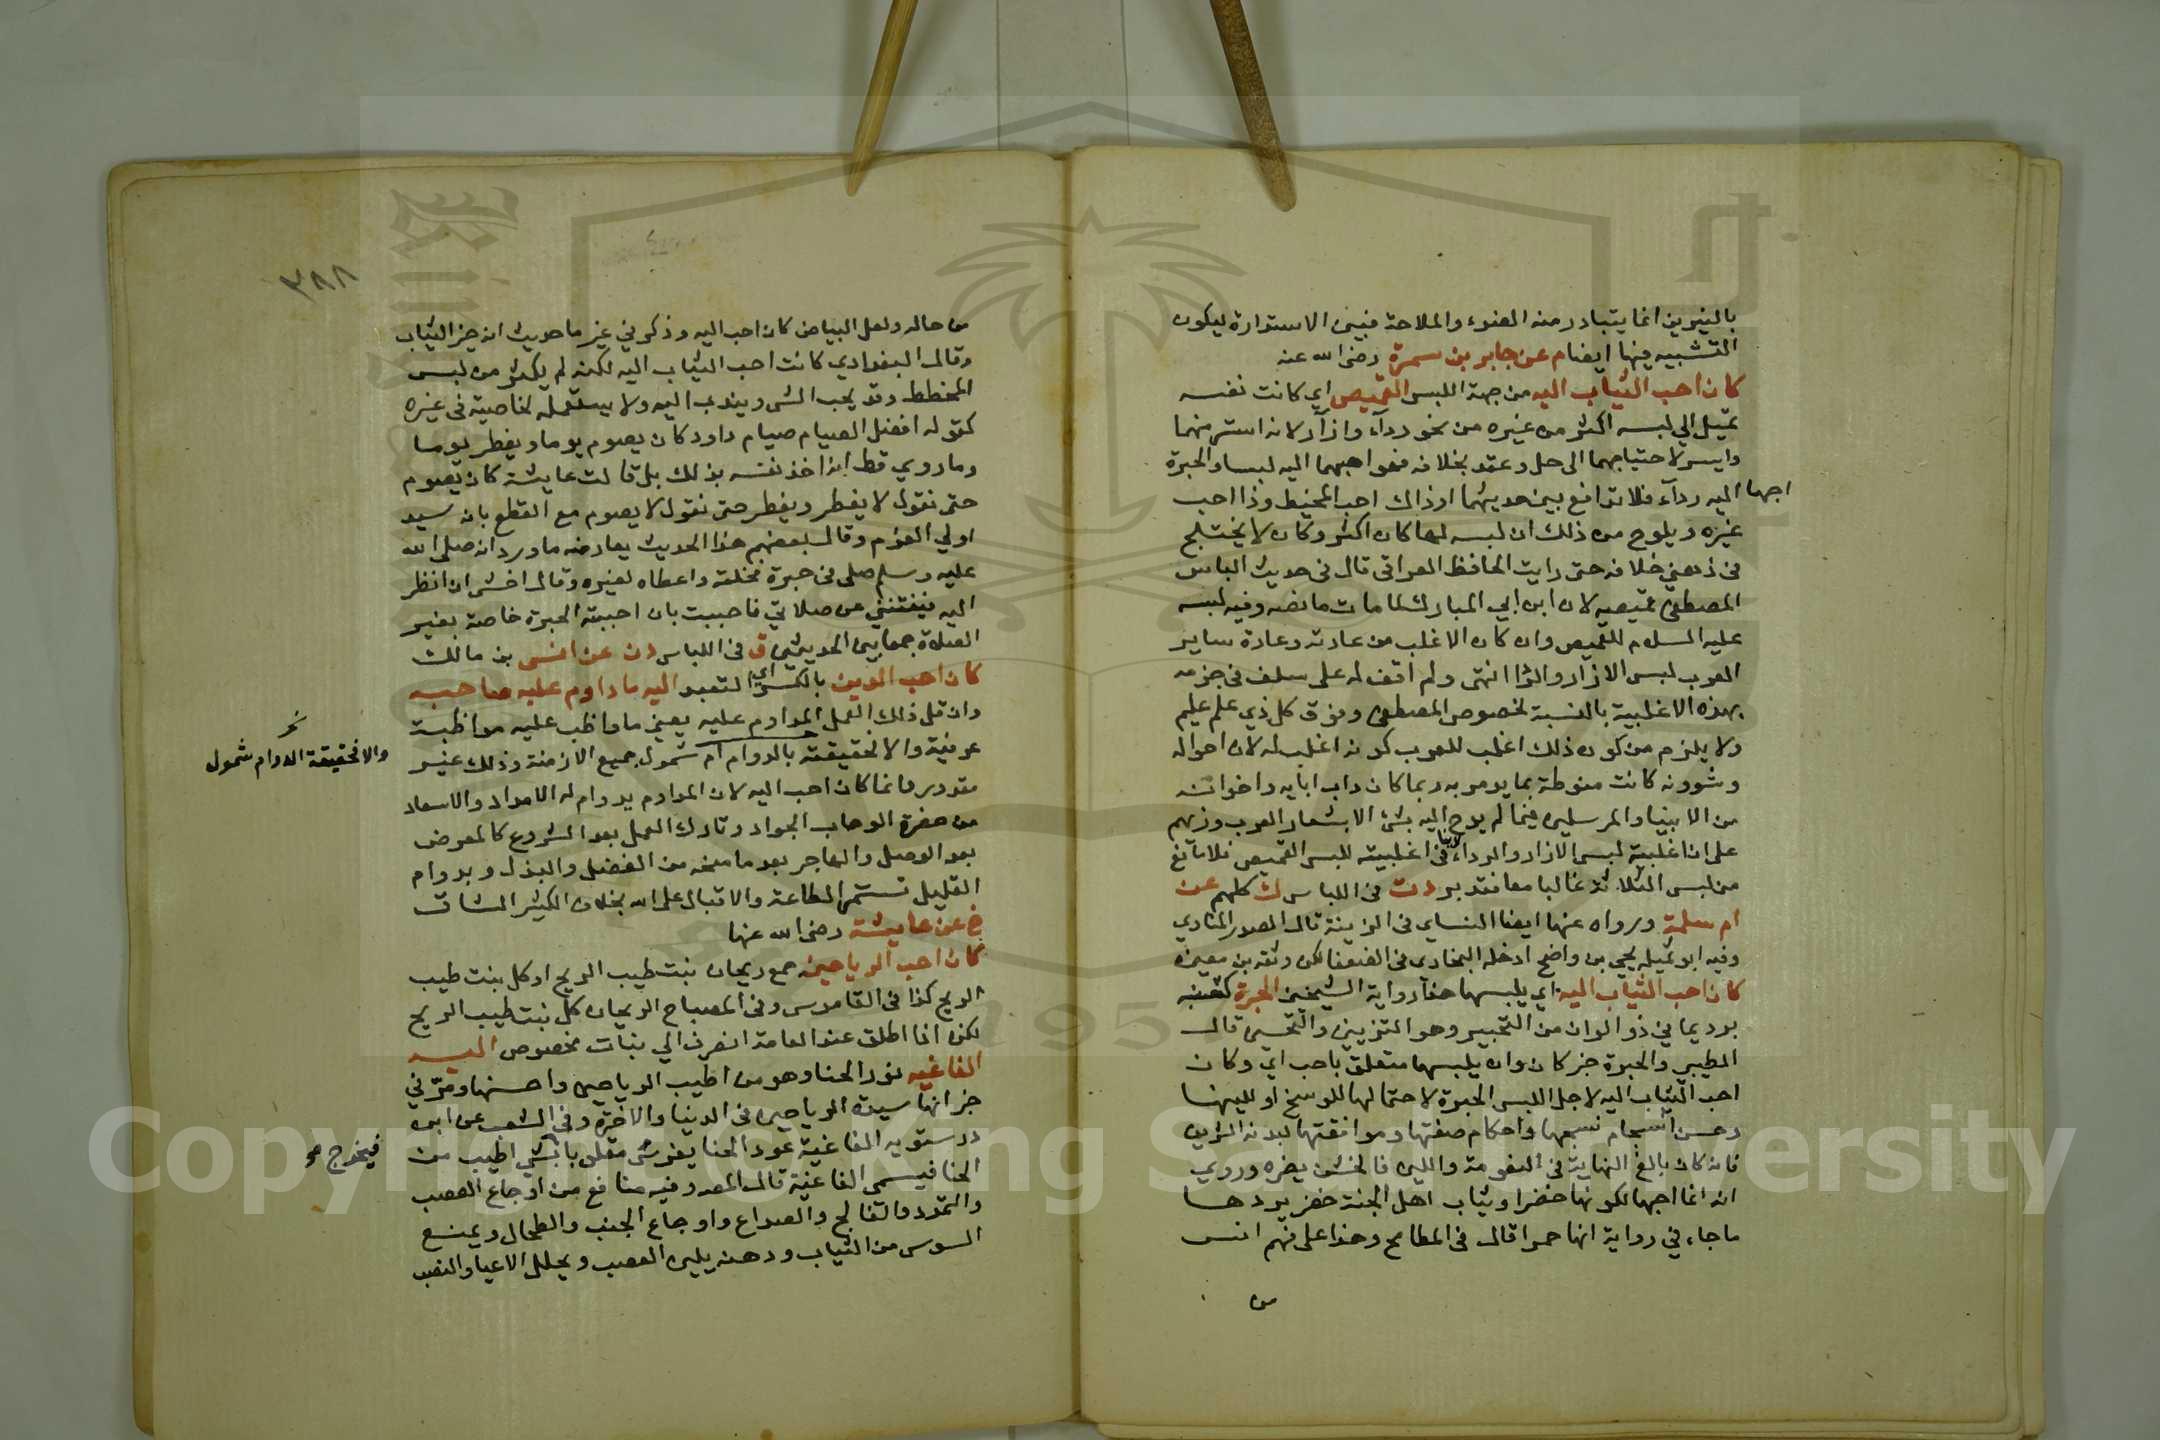 بالنيرين انما يتبادر منه الضوء والملاحة فبين الاستدارة ليكون
التشبيه فيها ايضا م عن جابر بن سمرة رضى الله عنه
كان احب الثياب اليه من جهة اللبس القميص اي كانت نفسه
تميل الي لبسه اكثر من غيره من نحو رداء وازار لانه استر منهما
وايسر لاحتياجهما الى حل وعقد بخلافه فهو احبهما اليه لبسا والحبرة
احبها اليه رداء فلا تدافع بين حديثهما او ذاك احب المخيط وذا احب
غيره ويلوح من ذلك ان لبسه لها كان اكثر وكان لا يختلج
في ذهني خلافه حتى رايت الحافظ العراقي قال في حديث الباس
المصطفى قميصه لابن ابي المبارك لما مات ما نصه وفيه لبسه
عليه السلام للقميص وان كان الاغلب من عادته وعادة ساير
العرب لبس الازار والردا انتهى ولم اقف له على سلف في جزمه
بهذه الاغلبية بالنسبة لخصوص المصطفى وفوق كل ذي علم عليم
ولا يلزم من كون ذلك اغلب للعرب كونه اغلب له لان احواله
وشوونه كانت منوطة بما يومر به وبما كان داب ابايه واخوانه
من الانبيا والمرسلين فيما لم يوح اليه بشئ الا بشعار العرب وزيهم
على ان اغلبية لبس الازار والرداء لا ينافى اغلبيته للبس القميص فلا مانع
من لبس الثلاثة غالبا معا فتدبر د ت فى اللباس ك كلهم عن
ام سلمة ورواه عنها ايضا النساي فى الزينة قال الصدر المناوي
وفيه ابو تميله يحيى بن واضح ادخله البخارى فى الضعفا لكن وثقه بن معين
كان احب الثياب اليه اي يلبسها هذا رواية الشيخين الحبرة كعنبة
برد يماني ذو الوان من التحبير وهو التزيين والتحسين قال
الطيبي والحبرة خبر كان وان يلبسها متعلق باحب اي وكان
احب الثياب اليه لاجل اللبس الحبرة لاحتمالها للوسخ او للينها
وحسن انسجام نسجها واحكام صنعتها وموافقتها لبدنه الشريف
فانه كان بالغ النهاية فى النعومة واللين فالخشن يضره ورويه
انه انما احبها لكونها خضرا وثياب اهل الجنة خضر يردها
ما جاء في رواية انها حمرا قال فى المطامح وهذا على فهم انس
من
٣٨٨
من حاله ولعل البياض كان احب اليه وذكر في غير ما حديث انه خير الثياب
وقال البغدادي كانت احب الثياب اليه لكنه لم يكثر من لبس
المخطط وقد يحب الشي ويندب اليه ولا يستعمله لخاصية فى غيره
كقوله افضل الصيام صيام داود كان يصوم يوما ويفطر يوما
وما روي قط انه اخذ نفسه بذلك بل قالت عايشة كان يصوم
حتى نقول لا يفطر ويفطر حتى نقول لا يصوم مع القطع بانه سيد
اولي العزم وقال بعضهم هذا الحديث يعارضه ما ورد انه صلى الله
عليه وسلم صلى فى حبرة مخلقة واعطاه لغيره وقال اخشى ان انظر
اليه فيفتنني عن صلاتي فاحببت بان احببته الحبرة خاصة بغير
الصلاة جمعا بين الحديثين ق فى اللباس د ن عن انس بن مالك
كان احب الدين بالكسر اي التعبد اليه ما داوم عليه صاحبه
وان قل ذلك العمل المداوم عليه يعني ما واظب عليه مواظبة
عرفية والا لحقيقة بالدوام ام شمول جميع الازمنة وذلك غير
والا فحقيقة الدوام شمول
مقدور وانما كان احب اليه لان المداوم يدوام له الامداد والاسعاد
من حضرة الوهاب الجواد وتارك العمل بعد الشروع كالمعرض
بعد الوصل والهاجر بعد ما منحه من الفضل والبذل وبدوام
القليل تستمر الطاعة والاقبال على الله بخلاف الكثير الشاق
خ عن عايشة رضى الله عنها
كان احب الرياحين جمع ريحان نبت طيب الريح او كل نبت طيب
الريح كذا فى القاموس وفى المصباح الريحان كل نبت طيب الريح
لكن اذا اطلق عند العامة انصرف الي نبات مخصوص اليه
الفاغية نور الحنا وهو من اطيب الرياحين واحسنها ومر في
خبر انها سيدة الرياحين فى الدنيا والاخرة وفى الشعب عن ابن
درستويه الفاغية عود الحنا يغرس مقلوبا بشي اطيب من
فيخرج
الحنا فيسمى الفاغية قال المصدر وفيه منافع من اوجاع العصب
والتمدد والفالج والصداع واوجاع الجنب والطحال ويمنع
السوس من الثياب ودهنه يلين العصب ويحلل الاعيا والنصب